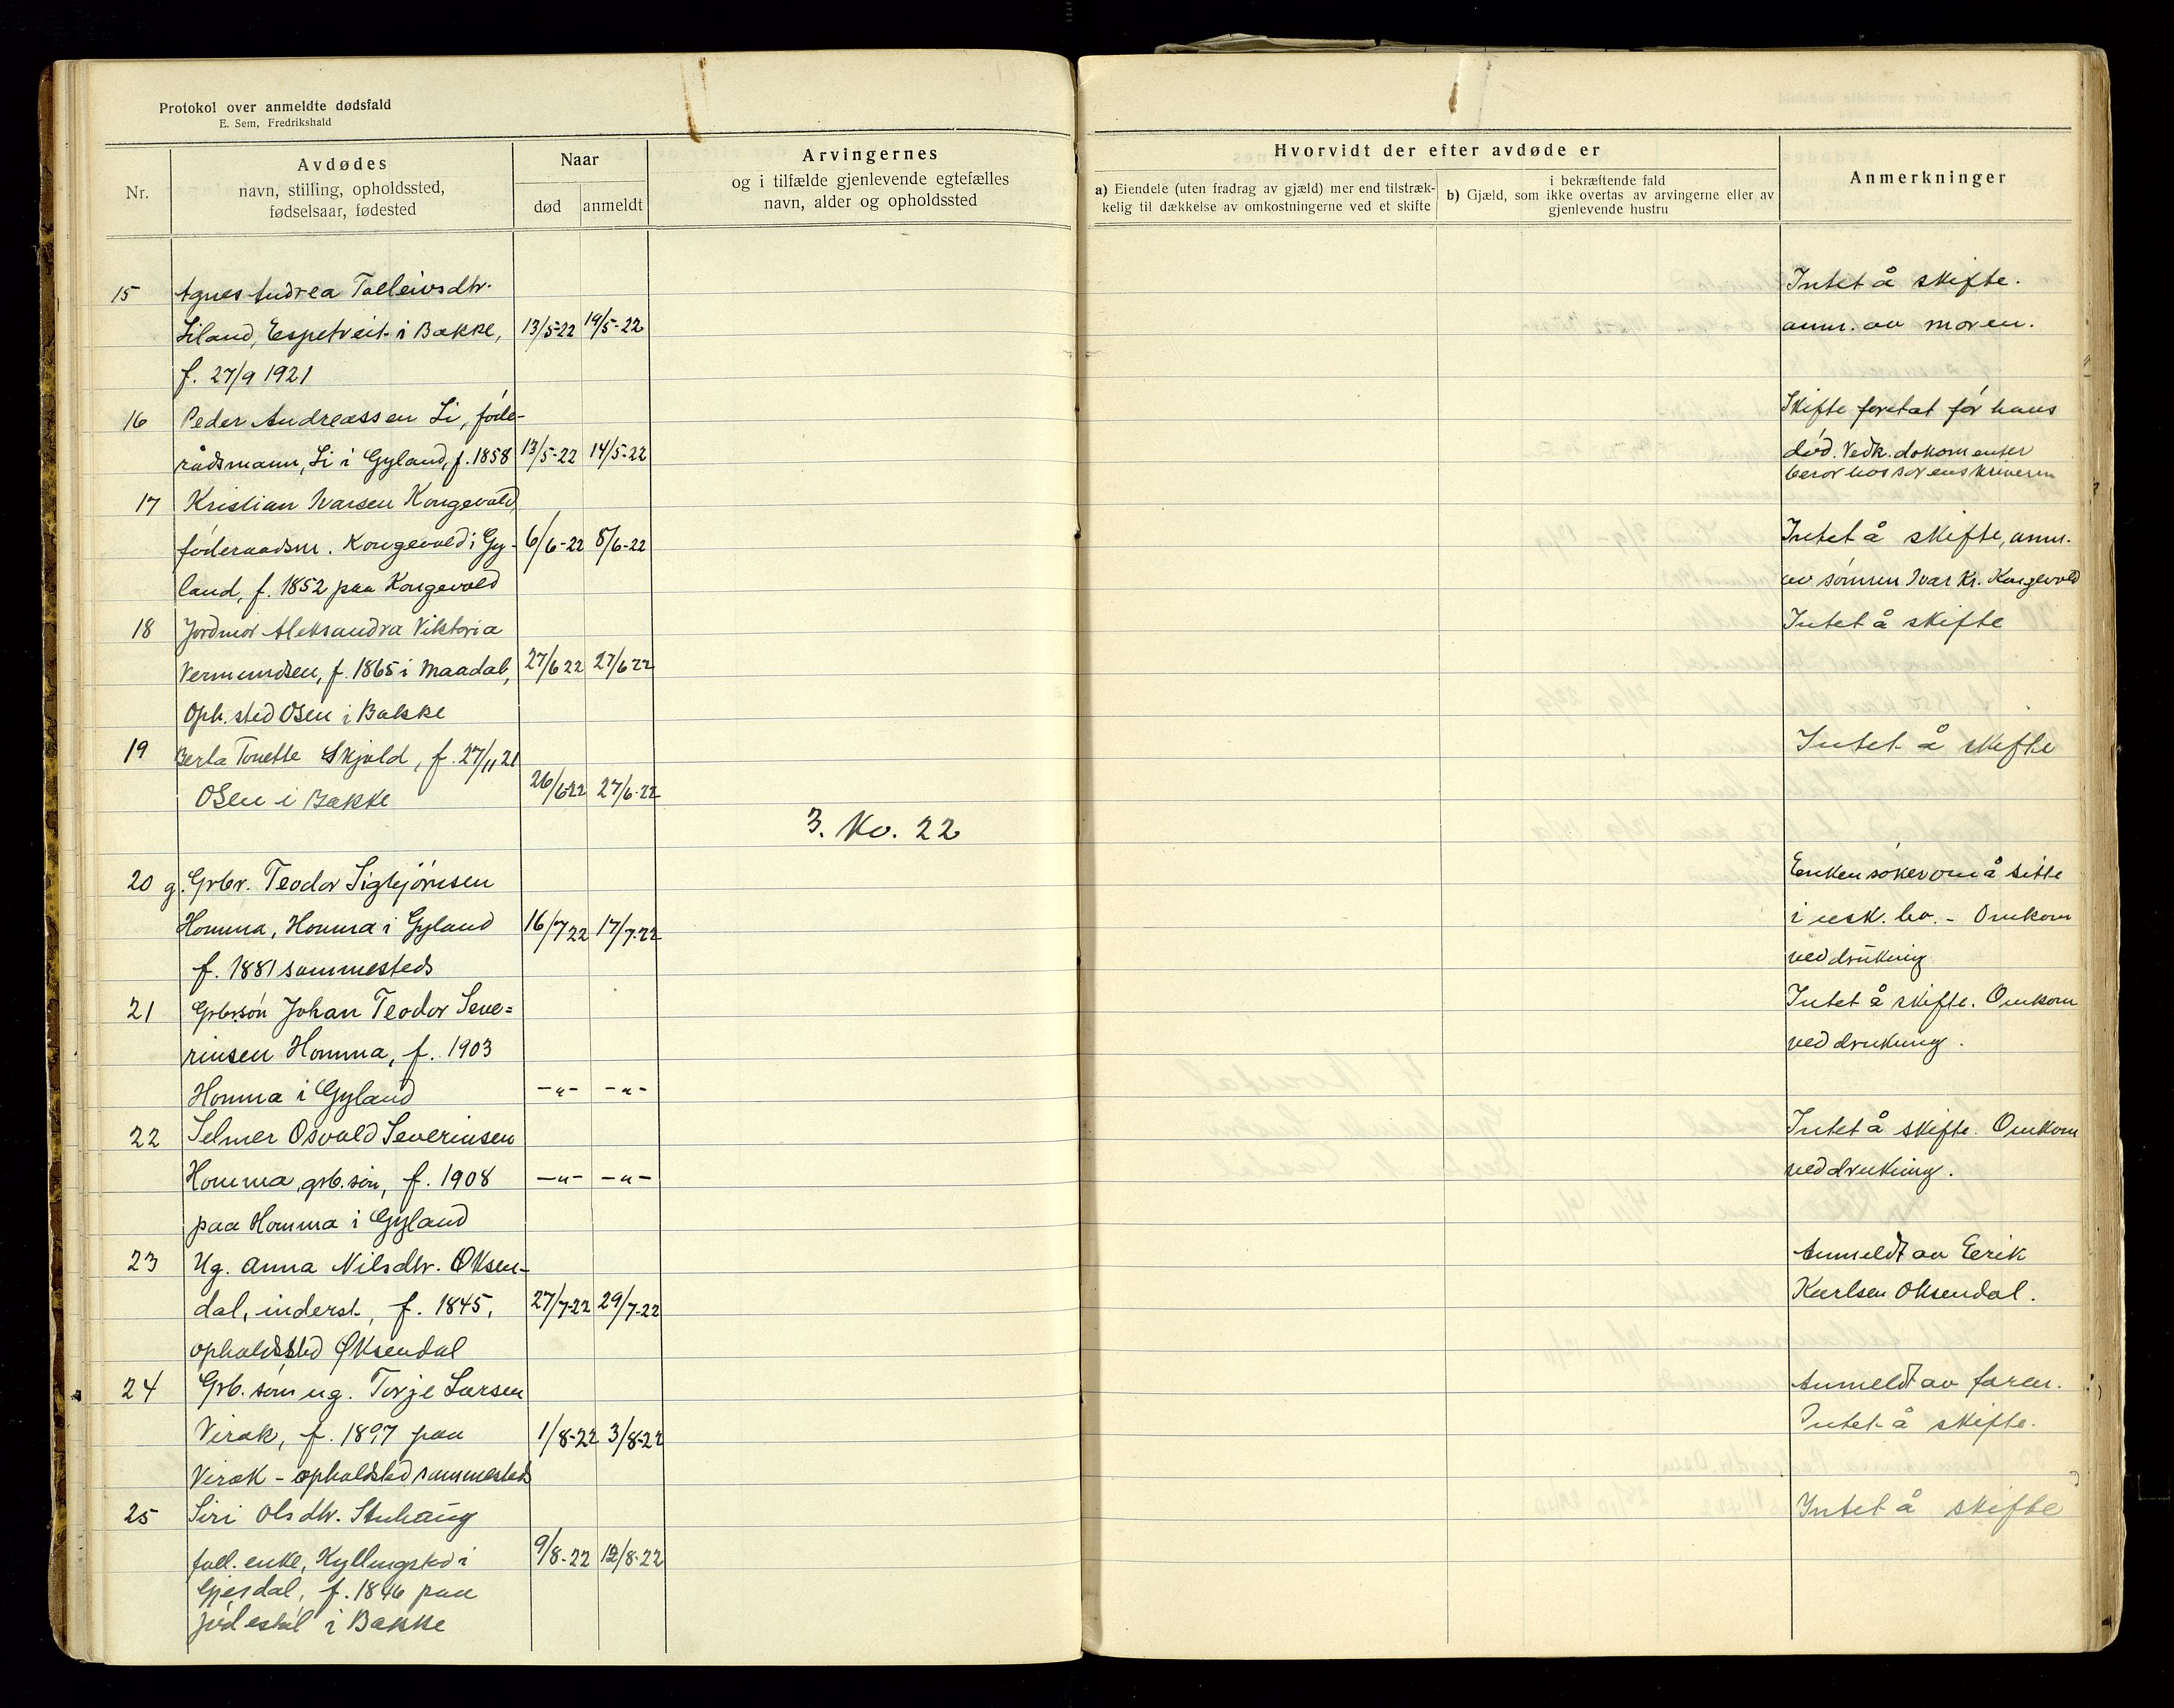 Protokol over anmeldte dødsfald
E. Sem, Fredrikshald
Nr.
Avdødes
navn, stilling, opholdssted,
fødselsaar, fødested
Naar
død
anmeldt
Arvingernes
og i tilfælde gjenlevende egtefælles
navn, alder og opholdssted
Hvorvidt der efter avdøde er
a) Eiendele (uten fradrag av gjæld) mer end tilstræk-
kelig til dækkelse av omkostningerne ved et skifte
i bekræftende fald
b) Gjæld, som ikke overtas av arvingerne eller av
gjenlevende hustru
Anmerkninger
15 Agnes Andrea Tolleivsdtr. Intet å skifte.
Liland, Espetveit i Bakke, 13/5-22 19/5-22 anm. av moren.
f. 27/9 1921
16 Peder Andreassen Li, føde- Skifte foretat før hans
rådsmann, Li i Gyland, f. 1858 13/5-22 14/5-22 død. Vedk. dokomenter
beror hos sorenskriveren
17 Kristian Ivarsen Kongevold,
føderaadsm. Kongevold i Gy- 6/6-22 8/6-22 Intet å skifte, anm.
land, f. 1852 paa Kongevold av sønnen Ivar Kr. Kongevold
18 Jordmor Aleksandra Viktoria Intet å skifte
Vermundsen, f. 1865 i Maadal, 27/6 22 27/6 22
Oph. sted Osen i Bakke
19 Berta Tonette Skjold, f. 27/11 21 Intet å skifte
Osen i Bakke 26/6-22 27/6-22
3. Kv. 22
20 g. Grbr. Teodor Sigbjørnsen Enken søker om å sitte
Homma, Homma i Gyland 16/7 22 17/7-22 i usk. bo. - Omkom
f. 1881 sammesteds ved drukning
21 Grbrsøn Johan Teodor Seve= Intet å skifte. Omkom
rinsen Homma, f. 1903 ved drukning.
Homma i Gyland -"- -"-
22 Selmer Osvald Severinsen Intet å skifte. Omkom
Homma, grb. søn, f. 1908 -"- -"- ved drukning.
paa Homma i Gyland
23 Ug. Anna Nilsdtr. Oksen- Anmeldt av Eerik
dal, inderst, f. 1845, 27/7-22 29/7-22 Karlsen Oksendal.
opholdssted Øksendal
24 Grb. søn ug. Torje Larsen Anmeldt av faren.
Virak, f. 1897 paa 1/8-22 3/8-22 Intet å skifte.
Virak - opholdsted sammesteds
25 Siri Olsdtr. Stuhaug Intet å skifte
fatt. enke, Kyllingstad i 9/8-22 12/8-22
Gjesdal, f. 1846 paa
Jødestøl i Bakke